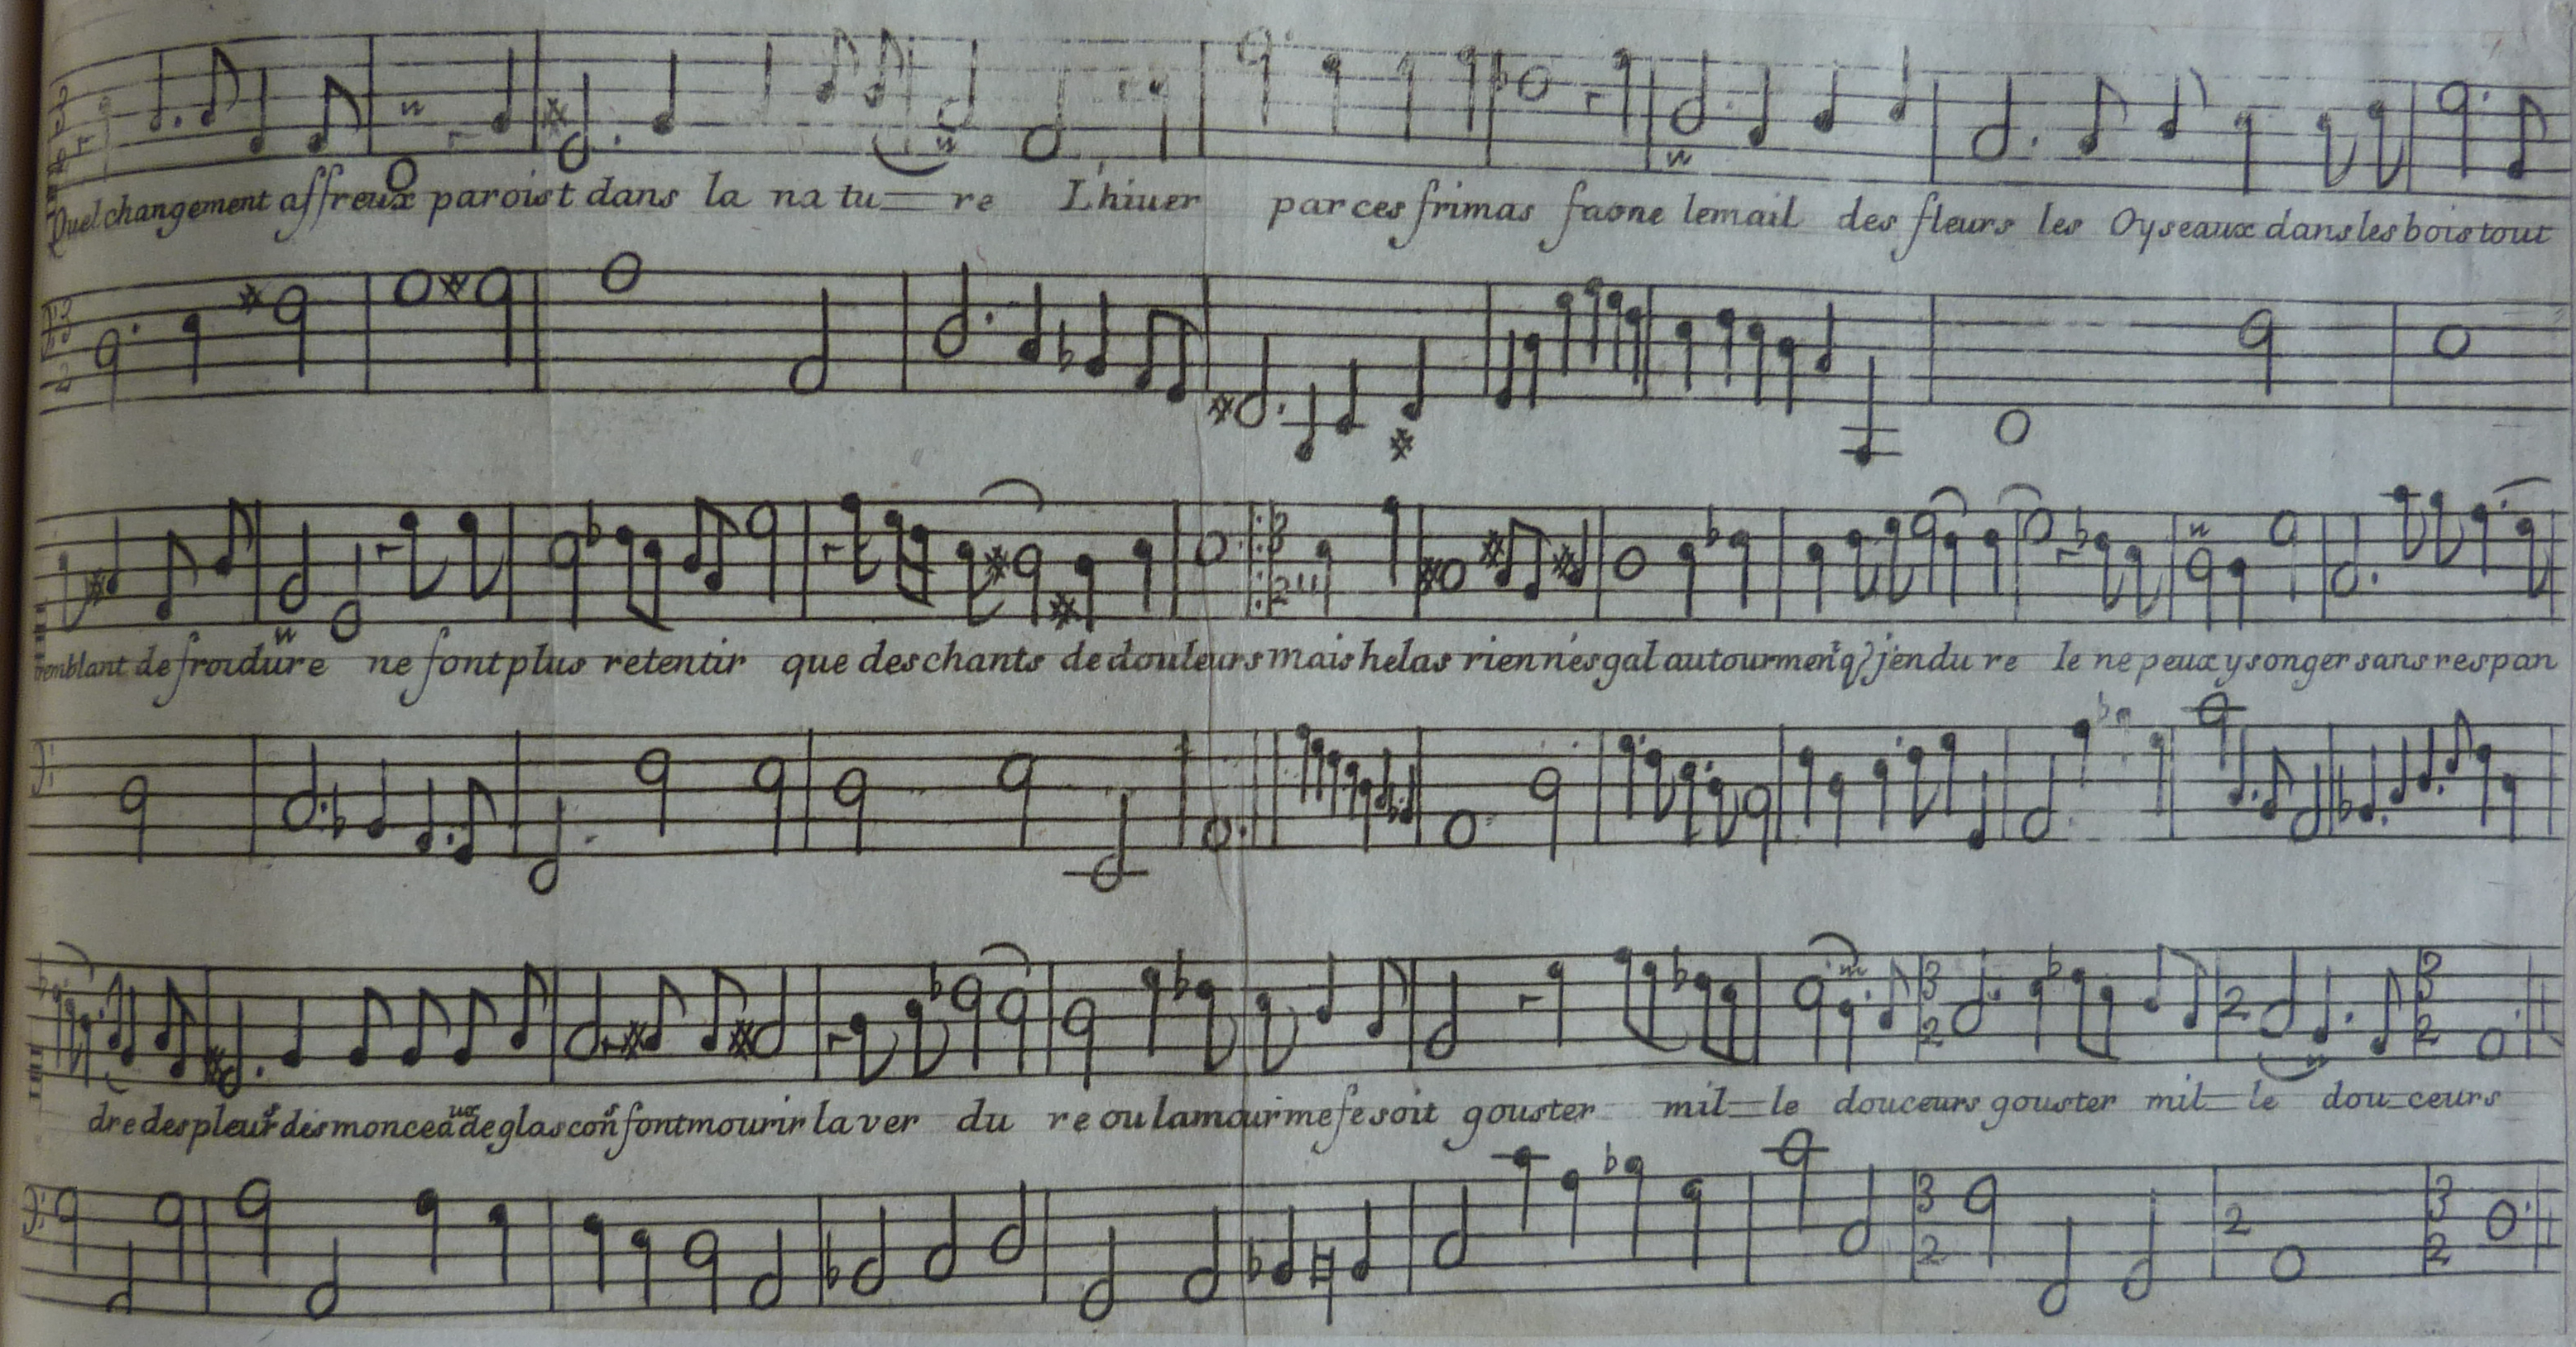 Quel changement affreux paroist dans la na tu re L'hiuer par ces frimas faone lemail des fleurs les Oyseaux dans les bois tout
tremblant de froidure ne font plus retentir que des chants de douleurs mais helas rien n'esgal au tourment q j'endu re Ie ne peux y songer sans respan
dre des pleurs des monceaux de glascons font mourir la ver du re ou lamour me fesoit gouster mil le douceurs gouster mil le dou ceurs